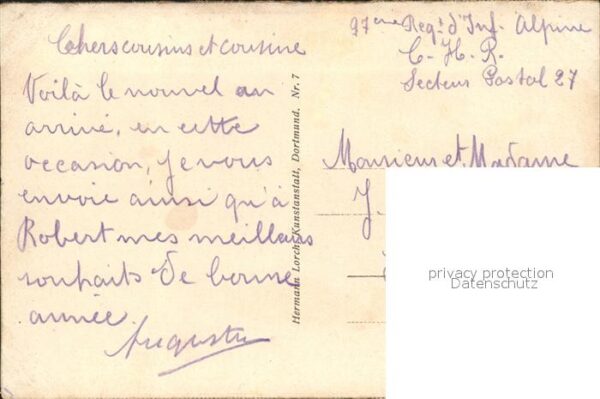 Chers cousins et cousine
Voilà le nouvel an
arrivé, en cette
occasion, je vous
envoie ainsi qu'à
Robert mes meilleurs
souhaits de bonne
année.
Auguste
Hermann Lorch, Kunstanstalt, Dortmund. Nr. 7
97ème Reg.t d'Inf. Alpine
C-H. R.
Secteur Postal 27
Monsieur et Madame
J.
privacy protection
Datenschutz